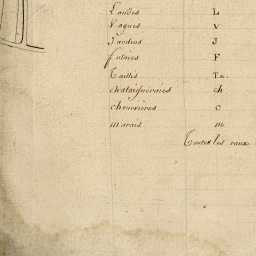 Landes L
Vagues V
Jardins J
futaies F
Tailles Ta.
chataigneraies ch
chenevières c
marais m
Toutes les eaux